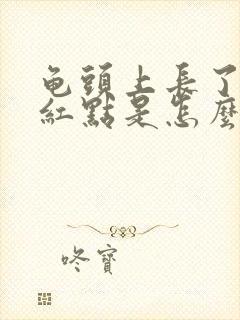 龟頭上長了
紅點是怎麼
咚寶